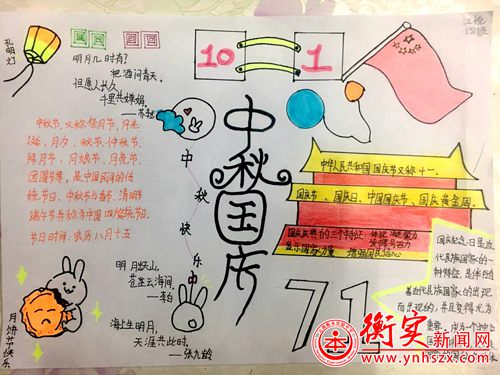 孔明灯
团圆 回回
10 1
152班
明月几时有?
把酒问青天。
但愿人长久,
千里共婵娟。
——苏轼
中秋节,又称祭月节、月光
诞、月夕、秋节、仲秋节、
拜月节、月娘节、月亮节、
团圆节等,是中国民间的传
统节日。中秋节与春节、清明节
端午节并称为中国四大传统节日。
节日时间:农历八月十五
中秋快乐
中秋国庆
中华人民共和国国庆节又称十一、
国庆节、国庆日、中国国庆节、国庆黄金周。
国庆庆典的三个特征:
显示国家力量 增强国民信心
明月出天山,
苍茫云海间。
——李白
海上生明月,
天涯共此时。
——张九龄
月饼节快乐
71
国庆纪念日是近
代民族国家的一
种特征,是伴随
着近代民族国家的出现
而出现的,并且变得尤为
重要。
衡实新闻网
www.ynhszx.com